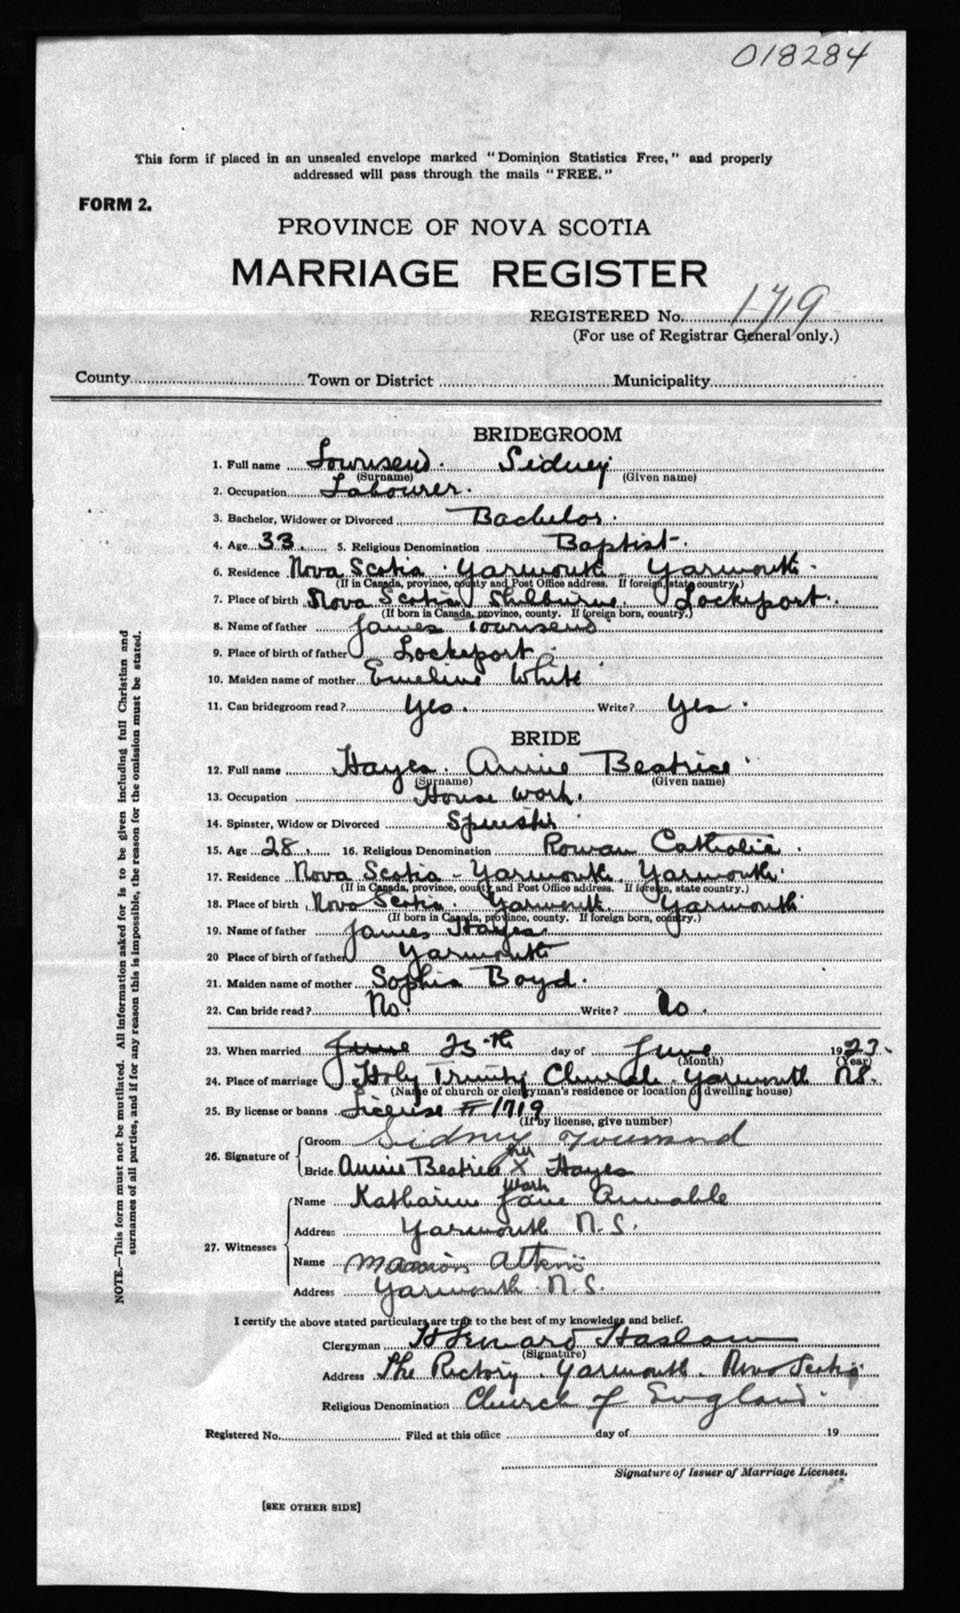 018284
This form if placed in an unsealed envelope marked "Dominion Statistics Free," and properly
addressed will pass through the mails "FREE."
FORM 2.
PROVINCE OF NOVA SCOTIA
MARRIAGE REGISTER
REGISTERED No. 1719
(For use of Registrar General only.)
County Town or District Municipality
BRIDEGROOM
1. Full name Townsend. Sidney
(Surname) (Given name)
2. Occupation Labourer.
3. Bachelor, Widower or Divorced Bachelor.
4. Age 33. 5. Religious Denomination Baptist.
6. Residence Nova Scotia. Yarmouth. Yarmouth.
(If in Canada, province, county and Post Office address. If foreign, state country.)
7. Place of birth Nova Scotia Shelburne. Lockeport.
(If born in Canada, province, county. If foreign born, country.)
8. Name of father James Townsend
9. Place of birth of father Lockeport.
10. Maiden name of mother Emeline White
11. Can bridegroom read? Yes. Write? Yes.
BRIDE
12. Full name Hayes. Annie Beatrice
(Surname) (Given name)
13. Occupation House work.
14. Spinster, Widow or Divorced Spinster
15. Age 28. 16. Religious Denomination Roman Catholic.
17. Residence Nova Scotia - Yarmouth. Yarmouth.
(If in Canada, province, county and Post Office address. If foreign, state country.)
18. Place of birth Nova Scotia. Yarmouth. Yarmouth
(If born in Canada, province, county. If foreign born, country.)
19. Name of father James Hayes
20 Place of birth of father Yarmouth
21. Maiden name of mother Sophia Boyd.
22. Can bride read? No. Write? No.
23. When married June 25th day of June 1923.
(Month) (Year)
24. Place of marriage Holy Trinity Church. Yarmouth N.S.
(Name of church or clergyman's residence or location of dwelling house)
25. By license or banns License # 1719
(If by license, give number)
26. Signature of Groom Sidney Townsend
Bride Annie Beatrice her X mark Hayes
27. Witnesses Name Katharine Jane Annable
Address Yarmouth N.S.
Name Marion Atkins
Address Yarmouth. N.S.
I certify the above stated particulars are true to the best of my knowledge and belief.
Clergyman Haslam
(Signature)
Address The Rectory. Yarmouth. Nova Scotia
Religious Denomination Church of England.
Registered No. Filed at this office day of 19
Signature of Issuer of Marriage Licenses.
[SEE OTHER SIDE]
NOTE.—This form must not be mutilated. All information asked for is to be given including full Christian and
surnames of all parties, and if for any reason this is impossible, the reason for the omission must be stated.